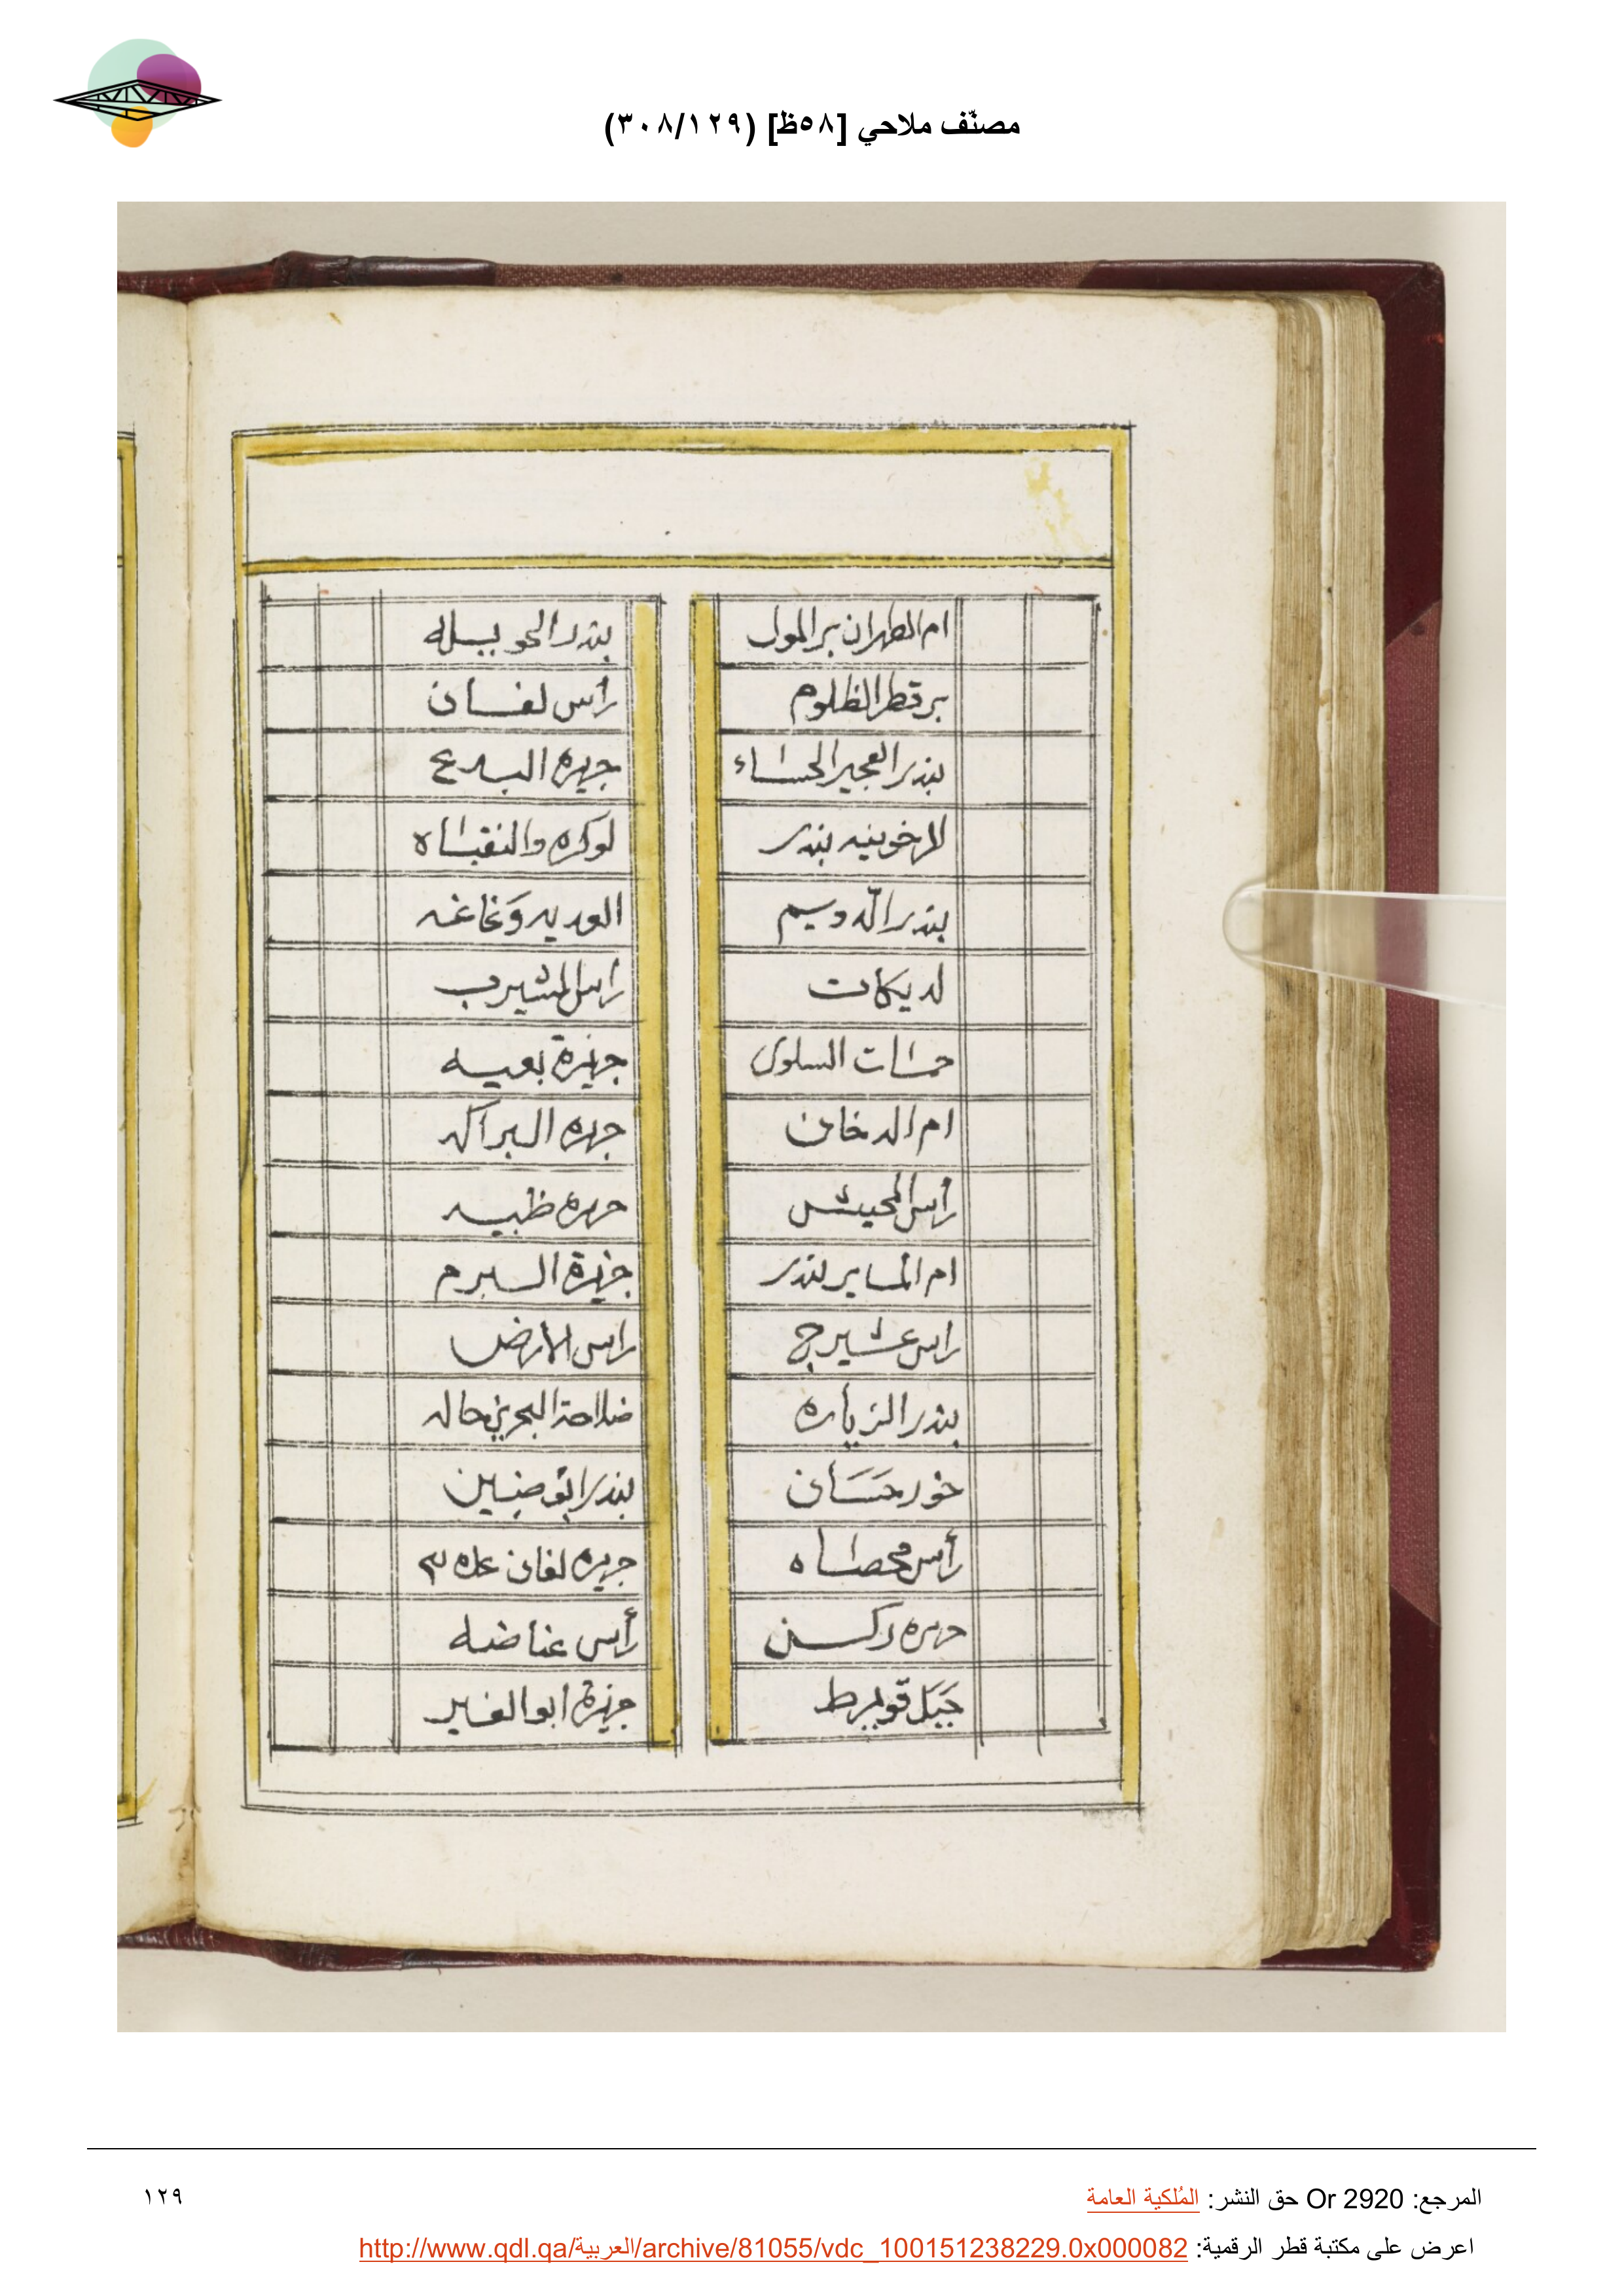 مصنّف ملاحي [٥٨ظ] (٣٠٨/١٢٩)
ام الظهران بر المول
بر قطر الظلوم
بندر العجير الحساء
الرخوينيه بندر
بندر الدوسيم
لديكات
حمسات السلوى
ام الدخان
رأس المحيشس
ام الماير بندر
راس عشيرج
بندر الزياره
خور حسان
رأس محصاه
جزيره ركسن
جبل قويرط
بندر الحويله
رأس لفان
جزيره البدع
لوكره والنقباه
العديد وغاغه
راس المشيرب
جزيرة بعيه
جزيره البراكه
جزيره ظبيه
جزيرة السبرم
راس الارض
ضلاحة البحرين حاله
بندر ابو ضنين
جزيره لفان
رأس عناضه
جزيرة ابو الفير
المرجع: Or 2920 حق النشر: المُلكية العامة
١٢٩
اعرض على مكتبة قطر الرقمية: http://www.qdl.qa/العربية/archive/81055/vdc_100151238229.0x000082